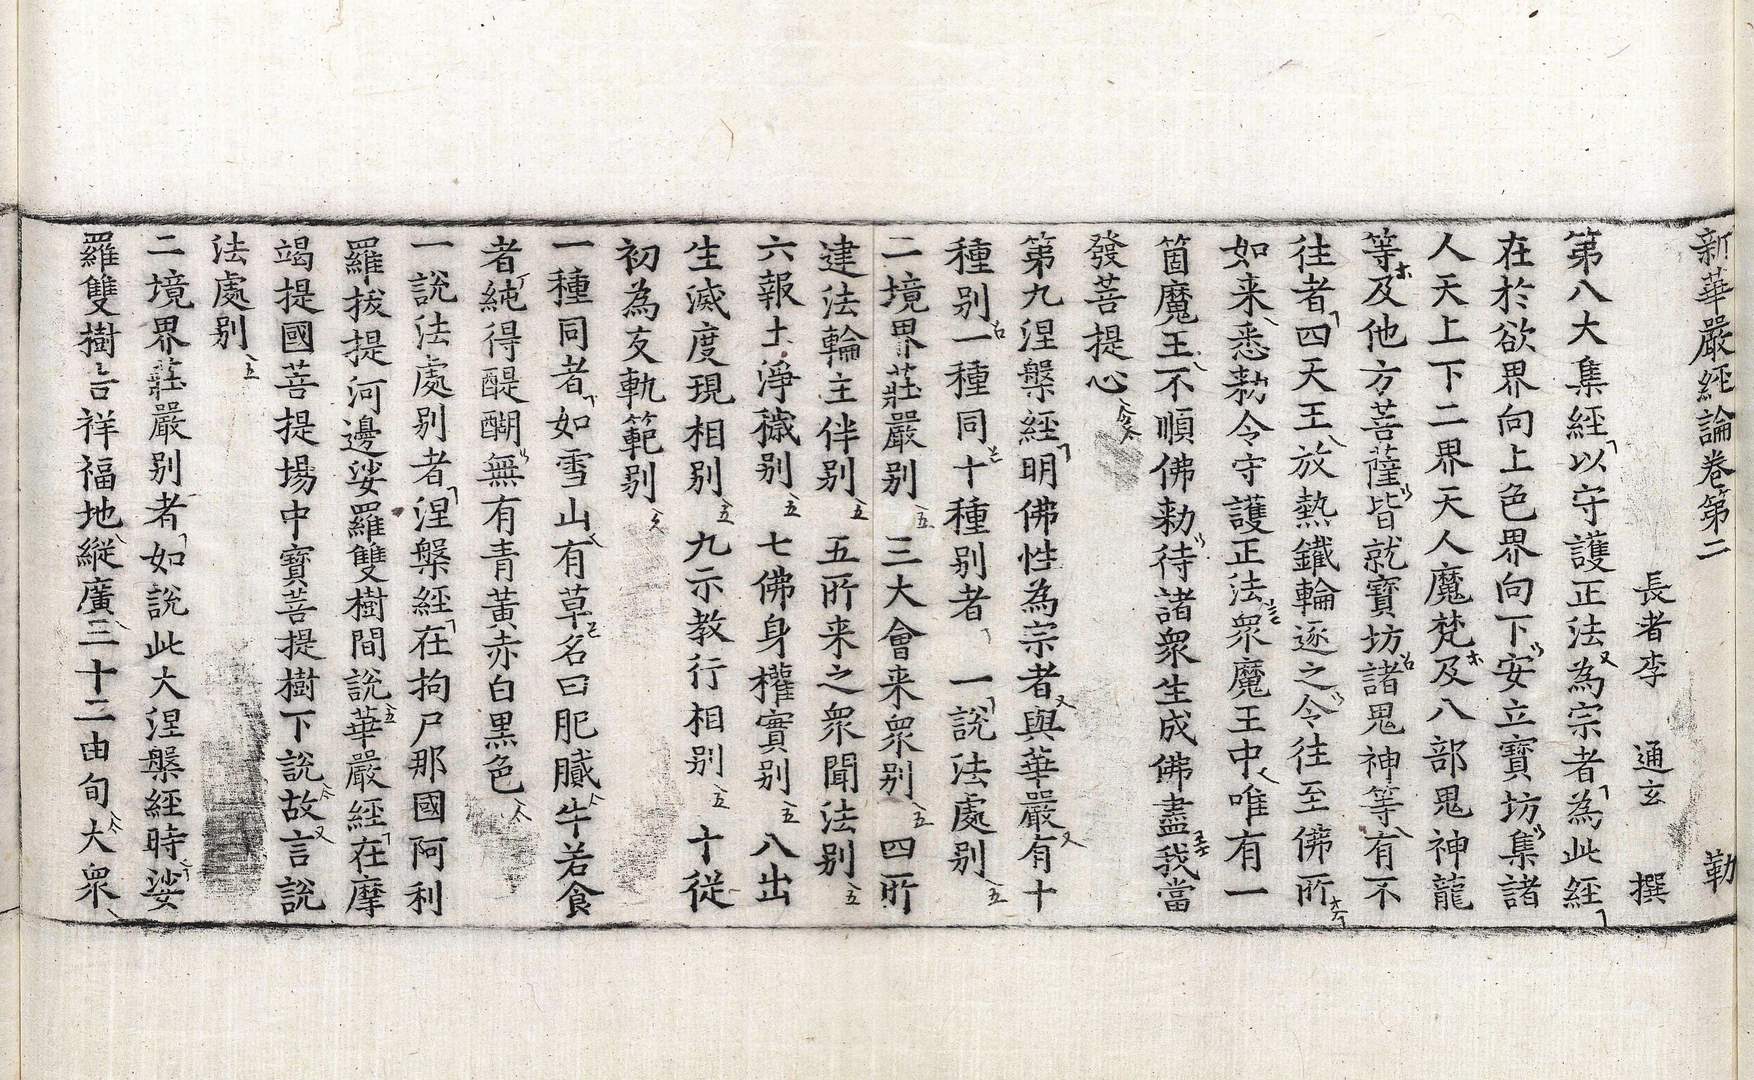 新華嚴經論卷第二 勒
長者李 通玄 撰
第八大集經以守護正法為宗者為此經
在於欲界向上色界向下安立寶坊集諸
人天上下二界天人魔梵及八部鬼神龍
等及他方菩薩皆就寶坊諸鬼神等有不
往者四天王放熱鐵輪逐之令往至佛所
如来悉勑令守護正法衆魔王中唯有一
箇魔王不順佛勑待諸衆生成佛盡我當
發菩提心
第九涅槃經明佛性為宗者與華嚴有十
種别一種同十種别者 一說法處别
二境界莊嚴别 三大會来衆别 四所
建法輪主伴别 五所来之衆聞法别
六報土淨穢别 七佛身權實别 八出
生滅度現相别 九示教行相别 十從
初為友軌範别
一種同者如雪山有草名曰肥膩牛若食
者純得醍醐無有青黃赤白黑色
一說法處别者涅槃經在拘尸那國阿利
羅拔提河邊娑羅雙樹間說華嚴經在摩
竭提國菩提場中寶菩提樹下說故言說
法處别
二境界莊嚴别者如說此大涅槃經時娑
羅雙樹吉祥福地縱廣三十二由旬大衆